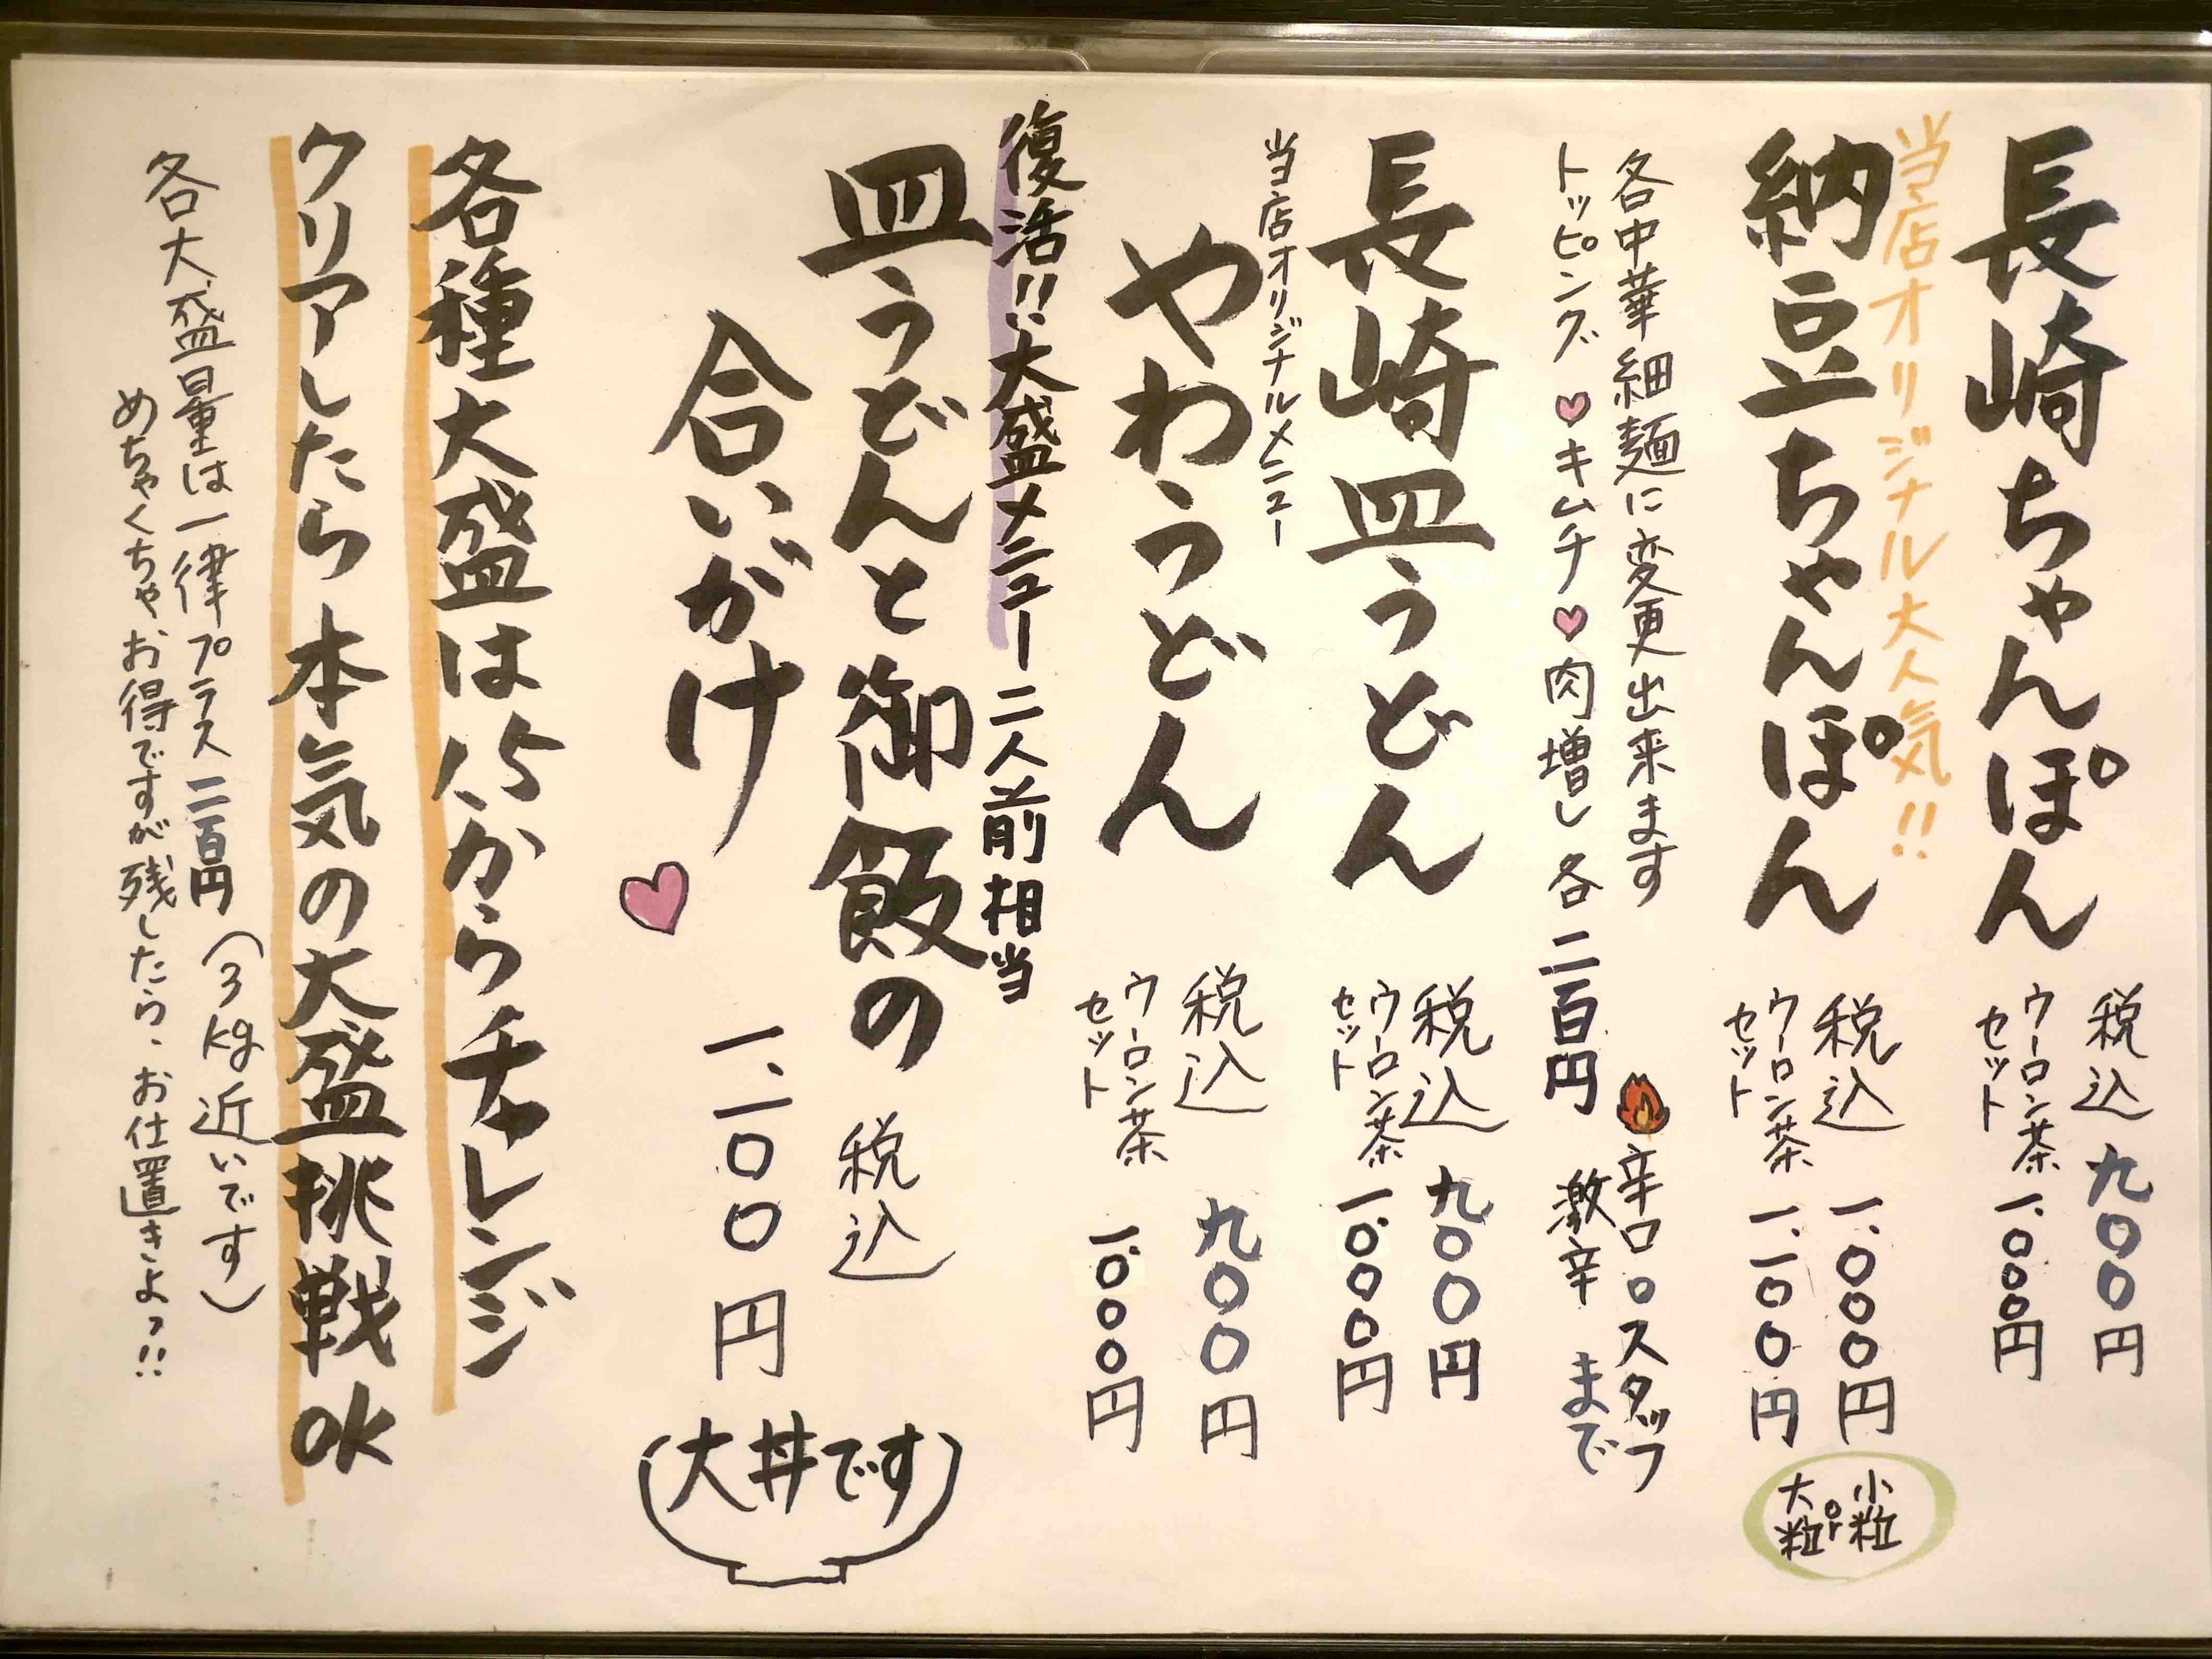 長崎ちゃんぽん
税込 九〇〇円
ウーロン茶セット 一、〇〇〇円
当店オリジナル大人気!!
納豆ちゃんぽん
税込 一、〇〇〇円
ウーロン茶セット 一、一〇〇円
小粒or大粒
各中華細麺に変更出来ます
トッピング♡キムチ♡肉増し 各二百円
辛口ロスタッフ
激辛 まで
長崎皿うどん
税込 九〇〇円
ウーロン茶セット 一、〇〇〇円
当店オリジナルメニュー
やわうどん
税込 九〇〇円
ウーロン茶セット 一、〇〇〇円
復活!!大盛メニュー 二人前相当
皿うどんと御飯の
合いがけ
税込
一、一〇〇円
(大丼です)
各種大盛は1.5からチャレンジ
クリアしたら本気の大盛挑戦OK
各大盛量は一律プラス二百円(3kg近いです)
めちゃくちゃお得ですが残したら、お仕置きよっ!!